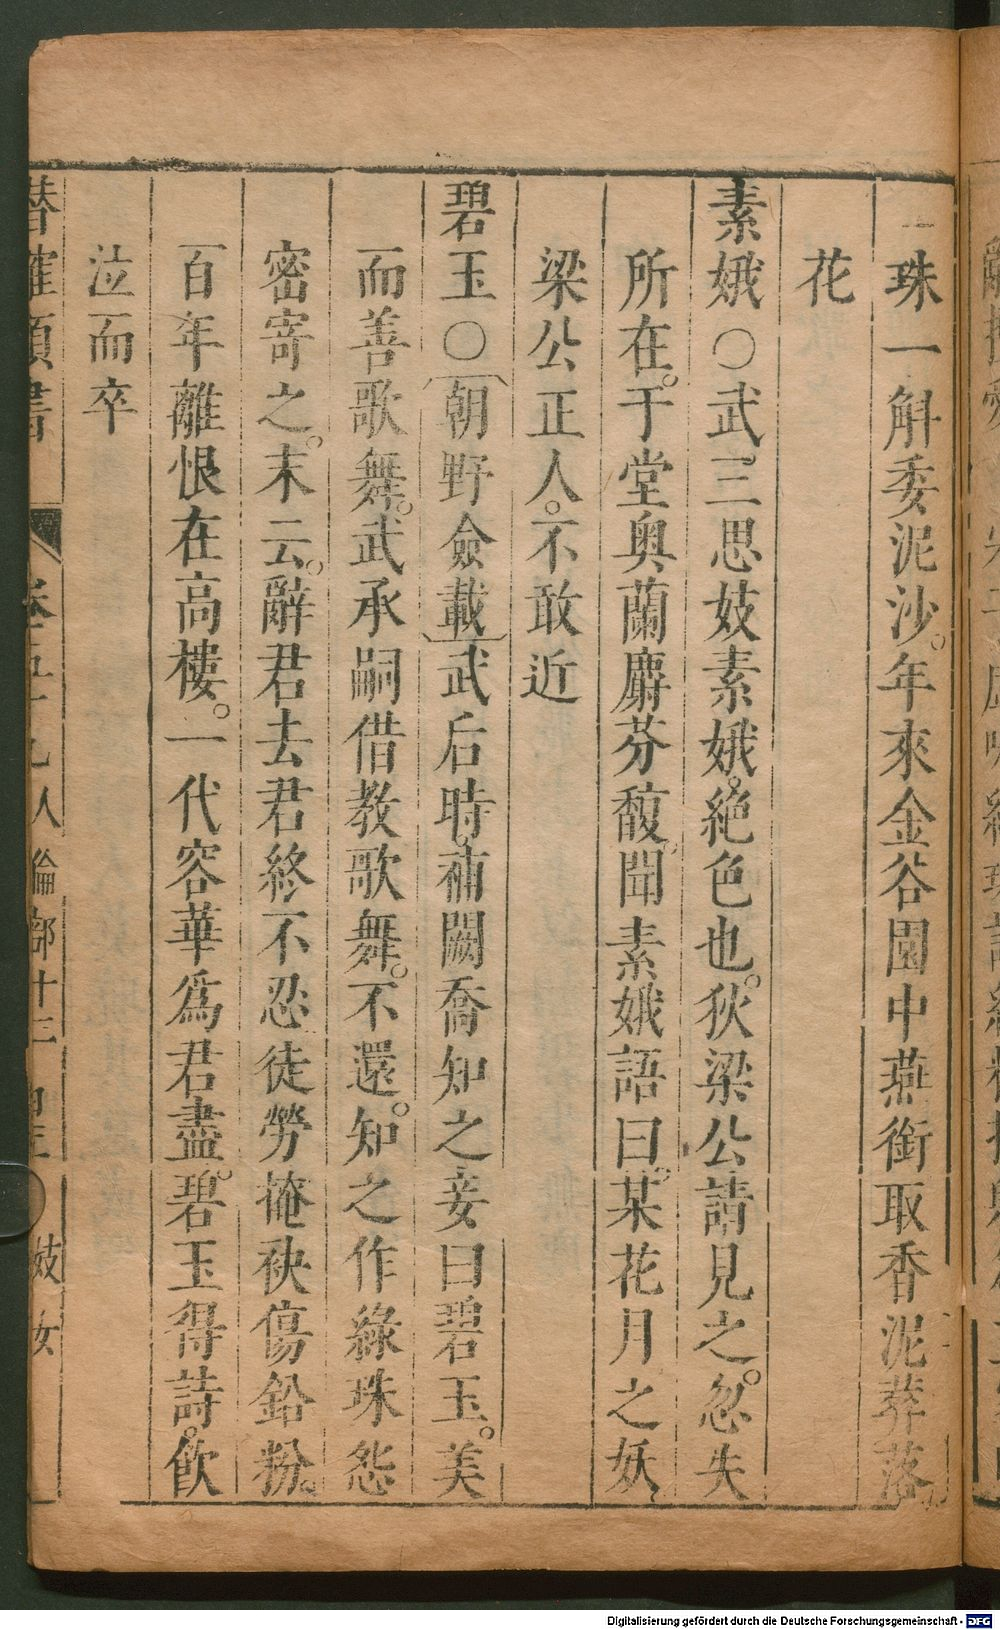 珠一斛委泥沙。年來金谷園中燕銜取香泥葬落
花
素娥〇武三思妓素娥。絕色也。狄梁公請見之。忽失
所在。于堂奧蘭麝芬馥聞素娥語曰。某花月之妖
梁公正人。不敢近
碧玉〇朝野僉載武后時。補闕喬知之妾曰碧玉。美
而善歌舞。武承嗣借教歌舞。不還。知之作綠珠怨
密寄之。末云。辭君去君終不忍徒勞掩袂傷鉛粉。
百年離恨在高樓。一代容華為君盡。碧玉得詩。飲
泣而卒
潛確類書 卷五十九 人倫部十三 妓女
Digitalisierung gefördert durch die Deutsche Forschungsgemeinschaft - DFG